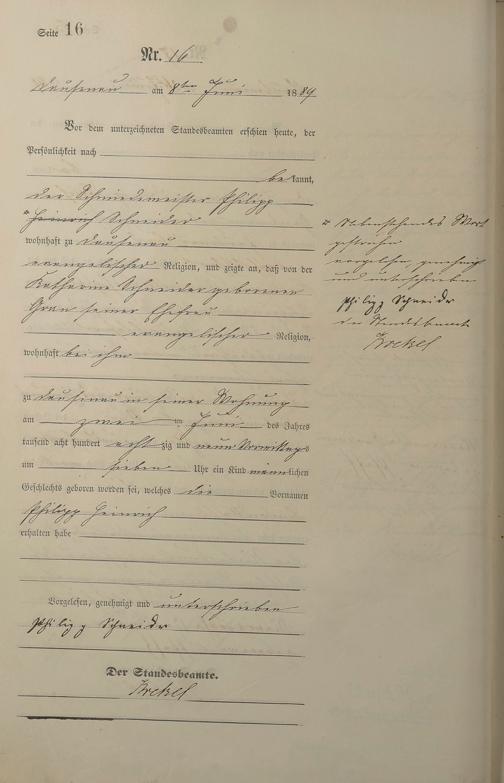 Seite 16
Nr. 16
Dausenau am 8ten Juni 1889
Vor dem unterzeichneten Standesbeamten erschien heute, der
Persönlichkeit nach
bekannt,
der Schmiedemeister Philipp
* Heinrich Schneider
wohnhaft zu Dausenau
evangelischer Religion, und zeigte an, daß von der
Katharine Schneider geborenen
seiner Ehefrau
evangelischer Religion,
wohnhaft bei ihm
zu Dausenau in seiner Wohnung
am zwei ten Juni des Jahres
tausend acht hundert achtzig und neun Vormittags
um sieben Uhr ein Kind männlichen
Geschlechts geboren worden sei, welches die Vornamen
Philipp Heinrich
erhalten habe
Vorgelesen, genehmigt und unterschrieben
Philipp Schneider
Der Standesbeamte.
* Nebenstehendes Wort
gestrichen
vorgelesen, genehmigt
und unterschrieben
Philipp Schneider
der Standesbeamte